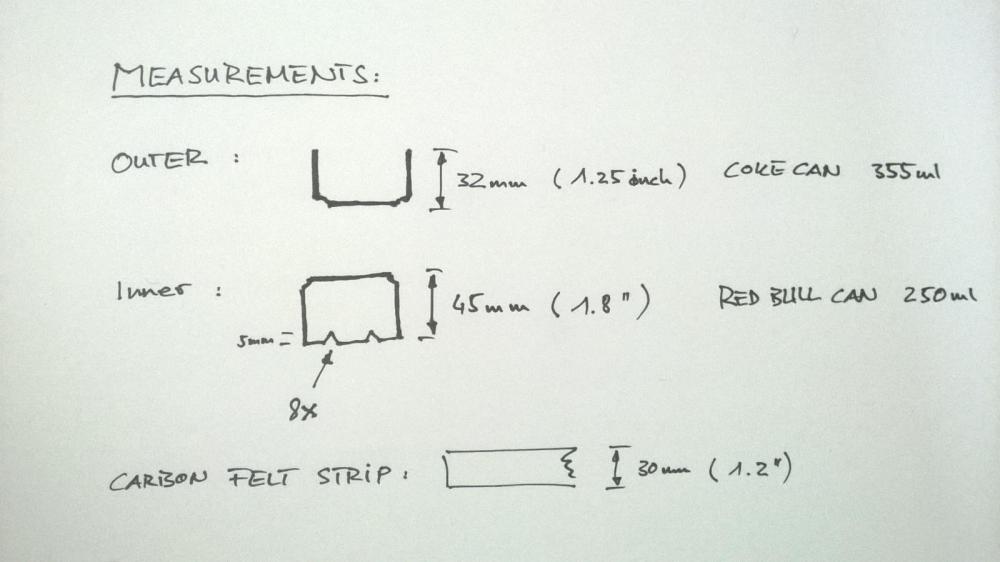 MEASUREMENTS:
OUTER : 32mm (1.25 inch) COKE CAN 355ml
Inner : 45mm (1.8") RED BULL CAN 250ml
5mm
8x
CARBON FELT STRIP : 30mm (1.2")